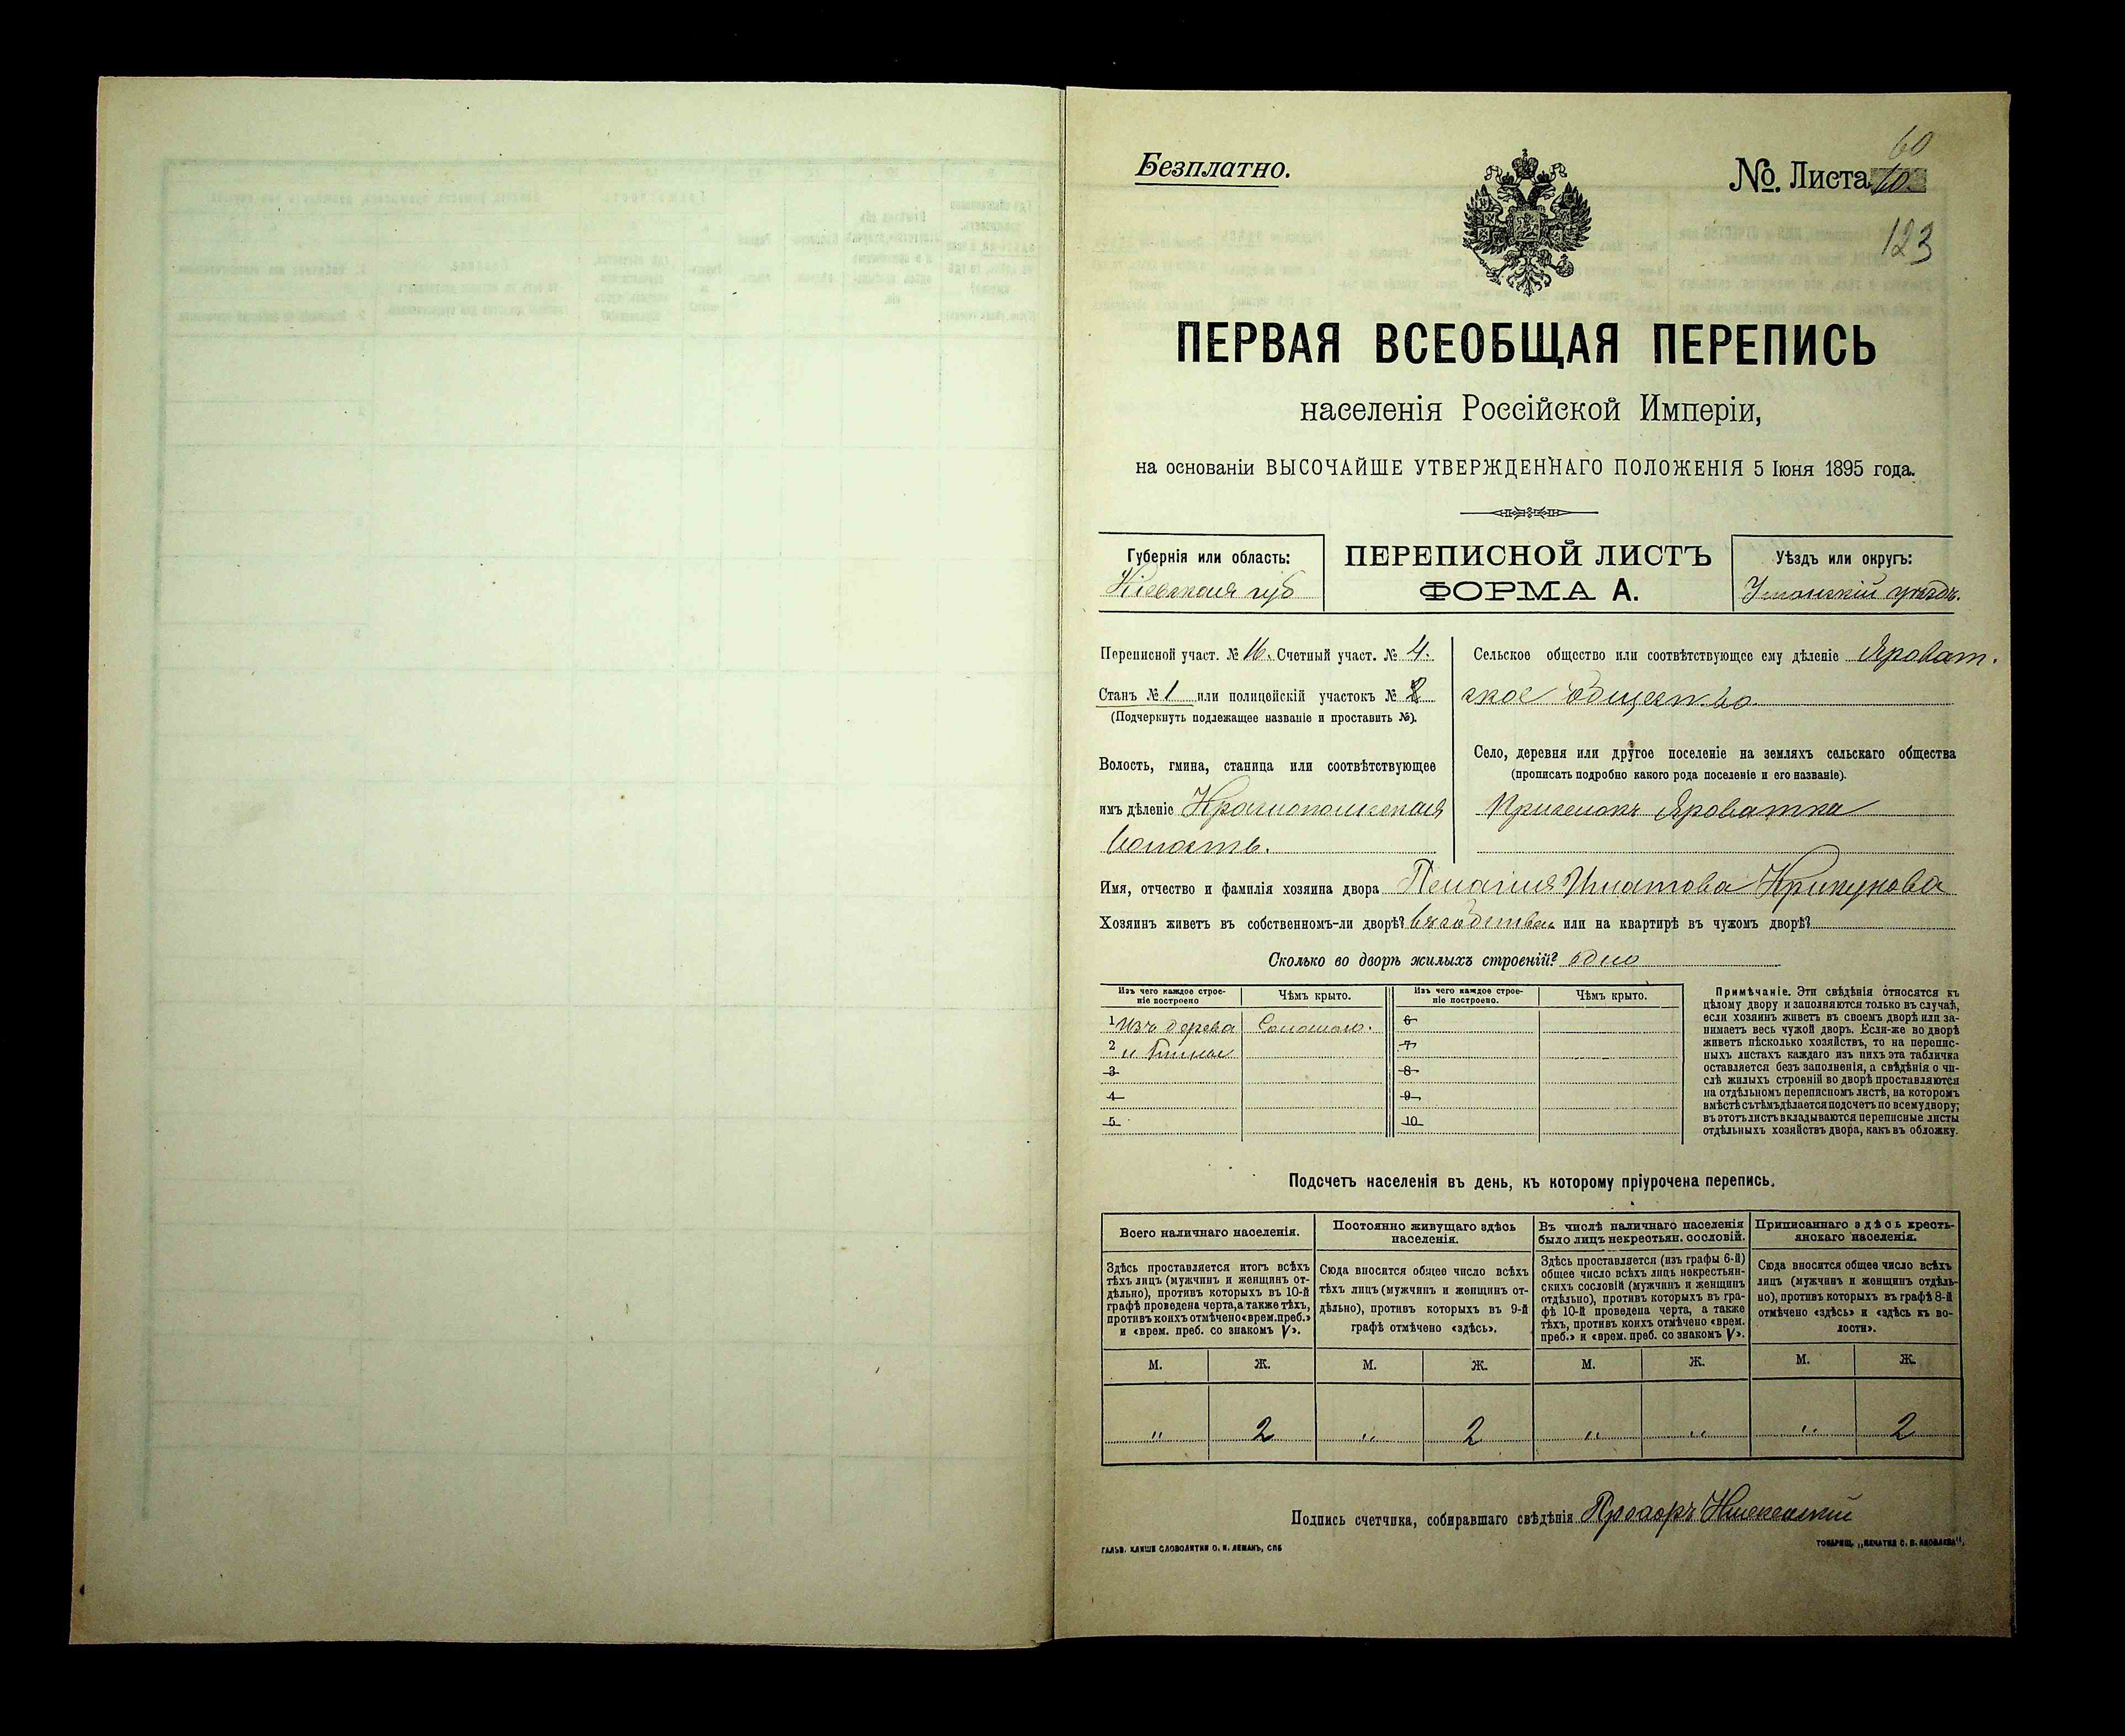 Безплатно.
№ Листа 60
60
123
ПЕРВАЯ ВСЕОБЩАЯ ПЕРЕПИСЬ
населенія Россійской Имперіи,
на основаніи ВЫСОЧАЙШЕ УТВЕРЖДЕННАГО ПОЛОЖЕНІЯ 5 Іюня 1895 года.
Губернія или область:
Кіевская губ
ПЕРЕПИСНОЙ ЛИСТЪ
ФОРМА А.
Уѣздъ или округъ:
Уманскій уѣздъ.
Переписной участ. № 16. Счетный участ. № 4.
Станъ № 1 или полицейскій участокъ № 2
(Подчеркнуть подлежащее названіе и проставить №).
Волость, гмина, станица или соотвѣтствующее
имъ дѣленіе Краснопольская
волость.
Сельское общество или соотвѣтствующее ему дѣленіе Яроват.
ское общество.
Село, деревня или другое поселеніе на земляхъ сельскаго общества
(прописать подробно какого рода поселеніе и его названіе).
Приселокъ Яроватка
Имя, отчество и фамилія хозяина двора Пелагия Игнатова Крикунова
Хозяинъ живетъ въ собственномъ-ли дворѣ? въ собствен. или на квартирѣ въ чужомъ дворѣ?
Сколько во дворѣ жилыхъ строеній? одно
Изъ чего каждое строе-
ніе построено
Чѣмъ крыто.
Изъ чего каждое строе-
ніе построено.
Чѣмъ крыто.
1 Изъ дерева Соломою. 6
2 и глины 7
3 8
4 9
5 10
Примѣчаніе. Эти свѣдѣнія относятся къ
цѣлому двору и заполняются только въ случаѣ,
если хозяинъ живетъ въ своемъ дворѣ или за-
нимаетъ весь чужой дворъ. Если-же во дворѣ
живетъ нѣсколько хозяйствъ, то на перепис-
ныхъ листахъ каждаго изъ нихъ эта табличка
оставляется безъ заполненія, а свѣдѣнія о чи-
слѣ жилыхъ строеній во дворѣ проставляются
на отдѣльномъ переписномъ листѣ, на которомъ
вмѣстѣ съ тѣмъ дѣлается подсчетъ по всему двору;
въ этотъ листъ вкладываются переписные листы
отдѣльныхъ хозяйствъ двора, какъ въ обложку.
Подсчетъ населенія въ день, къ которому пріурочена перепись.
Всего наличнаго населенія.
Здѣсь проставляется итогъ всѣхъ
тѣхъ лицъ (мужчинъ и женщинъ от-
дѣльно), противъ которыхъ въ 10-й
графѣ проведена черта, а также тѣхъ,
противъ коихъ отмѣчено «врем. преб.»
и «врем. преб. со знакомъ V».
Постоянно живущаго здѣсь
населенія.
Сюда вносится общее число всѣхъ
тѣхъ лицъ (мужчинъ и женщинъ от-
дѣльно), противъ которыхъ въ 9-й
графѣ отмѣчено «здѣсь».
Въ числѣ наличнаго населенія
было лицъ некрестьян. сословій.
Здѣсь проставляется (изъ графы 6-й)
общее число всѣхъ лицъ некрестьян-
скихъ сословій (мужчинъ и женщинъ
отдѣльно), противъ которыхъ въ гра-
фѣ 10-й проведена черта, а также
тѣхъ, противъ коихъ отмѣчено «врем.
преб.» и «врем. преб. со знакомъ V».
Приписаннаго здѣсь кресть-
янскаго населенія.
Сюда вносится общее число всѣхъ
лицъ (мужчинъ и женщинъ отдѣль-
но), противъ которыхъ въ графѣ 8-й
отмѣчено «здѣсь» и «здѣсь къ во-
лости».
М. Ж. М. Ж. М. Ж. М. Ж.
" 2 " 2 " " " 2
Подпись счетчика, собиравшаго свѣдѣнія Прохоръ
ГАЛЬВ. КЛИШЕ СЛОВОЛИТНИ О. И. ЛЕМАНЪ, СПБ
ТОВАРИЩ. „ПЕЧАТНЯ С. П. ЯКОВЛЕВА".